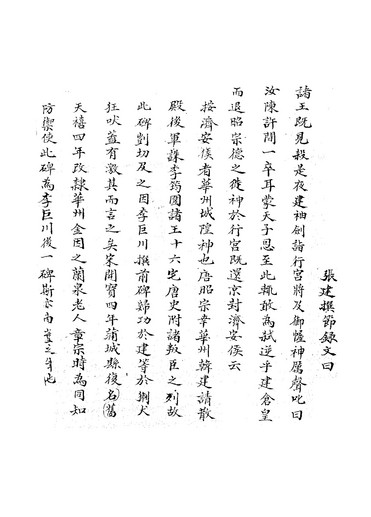 張建撰節錄文曰
諸王既見殺是夜建袖劍詣行宮將及御幄神厲聲叱曰
汝陳許間一卒耳蒙天子恩至此輒敢為弒逆乎建倉皇
而退昭宗德之徙神於行宮既還京封濟安侯云
按濟安侯者華州城隍神也唐昭宗幸華州韓建請散
殿後軍誅李筠圍諸王十六宅唐史附諸叛臣之列故
此碑剴切及之因李巨川撰前碑歸功於建等於猘犬
狂吠蓋有激其而言之矣宋開寶四年蒲城縣復名舊
天禧四年改隸華州金因之蘭泉老人章宗時為同知
防禦使此碑為李巨川後一碑斯